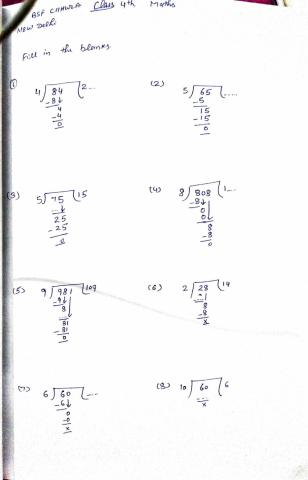 BSF CHAWLA Class 4th Maths
New Delhi
Fill in the blanks
(1) 4 84 2...
-8
4
-4
0
(2) 5 65 .....
-5
15
-15
0
(3) 5 75 15
...
25
-25
0
(4) 8 808 1...
-8
0
0
8
-8
0
(5) 9 981 109
-9
8
...
81
-81
0
(6) 2 28 14
...
8
-8
x
(7) 6 60 ....
-6
0
-0
x
(8) 10 60 6
...
x